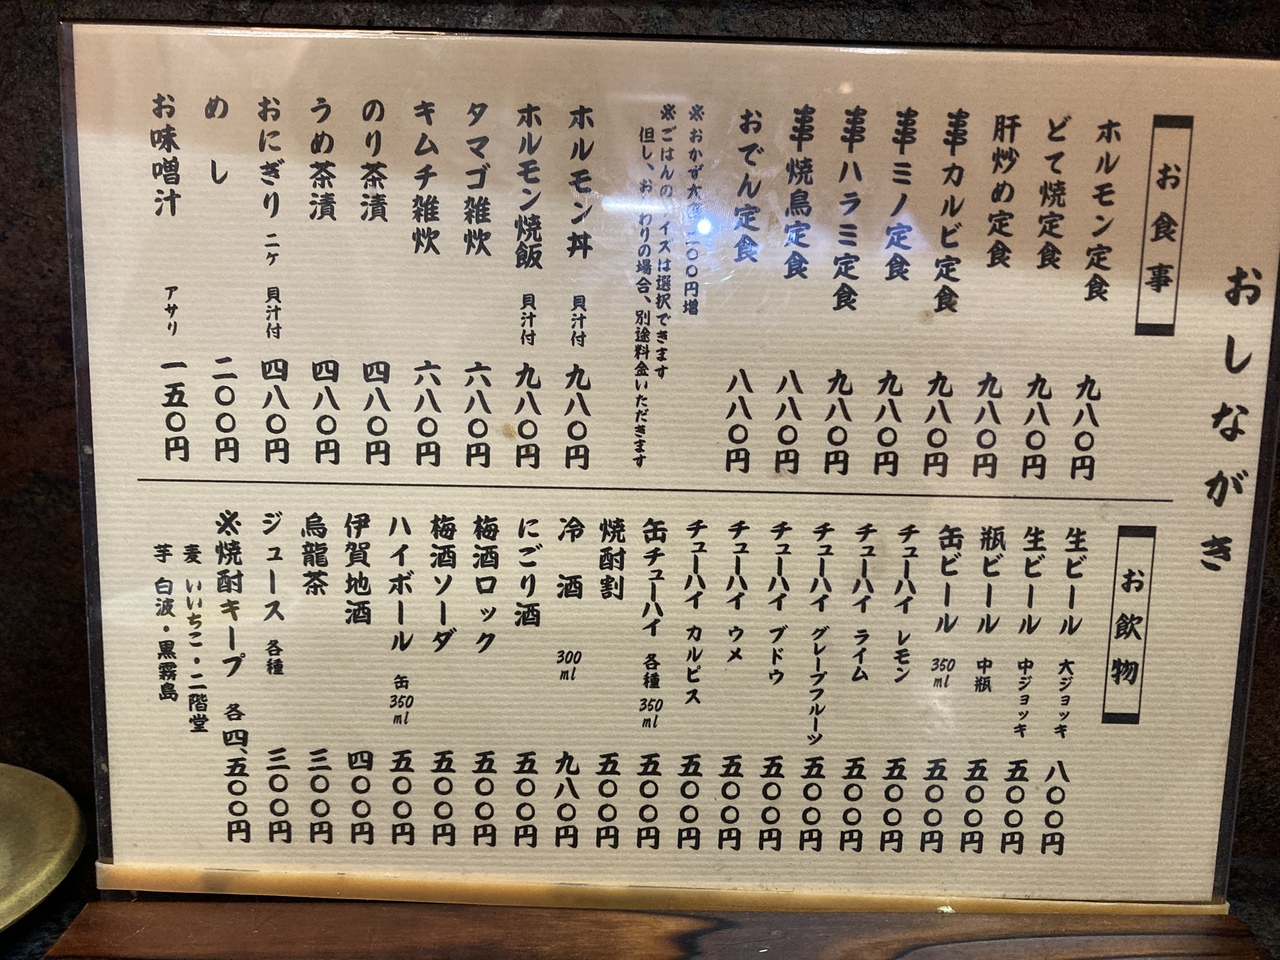 おしながき
お食事
ホルモン定食 九八〇円
どて焼定食 九八〇円
肝炒め定食 九八〇円
串カルビ定食 九八〇円
串ミノ定食 九八〇円
串ハラミ定食 九八〇円
串焼鳥定食 八八〇円
おでん定食 八八〇円
※おかず大 〇〇円増
※ごはんの イズは選択できます
但し、お わりの場合、別途料金いただきます
ホルモン丼 貝汁付 九八〇円
ホルモン焼飯 貝汁付 九八〇円
タマゴ雑炊 六八〇円
キムチ雑炊 六八〇円
のり茶漬 四八〇円
うめ茶漬 四八〇円
おにぎり 二ケ 貝汁付 四八〇円
めし 二〇〇円
お味噌汁 アサリ 一五〇円
お飲物
生ビール 大ジョッキ 八〇〇円
生ビール 中ジョッキ 五〇〇円
瓶ビール 中瓶 五〇〇円
缶ビール 350ml 五〇〇円
チューハイ レモン 五〇〇円
チューハイ ライム 五〇〇円
チューハイ グレープフルーツ 五〇〇円
チューハイ ブドウ 五〇〇円
チューハイ ウメ 五〇〇円
チューハイ カルピス 五〇〇円
缶チューハイ 各種 350ml 五〇〇円
焼酎割 五〇〇円
冷酒 300ml 九八〇円
にごり酒 五〇〇円
梅酒ロック 五〇〇円
梅酒ソーダ 五〇〇円
ハイボール 缶 350ml 五〇〇円
伊賀地酒 四〇〇円
烏龍茶 三〇〇円
ジュース 各種 三〇〇円
※焼酎キープ 各 四、五〇〇円
麦 いいちこ・二階堂
芋 白波・黒霧島